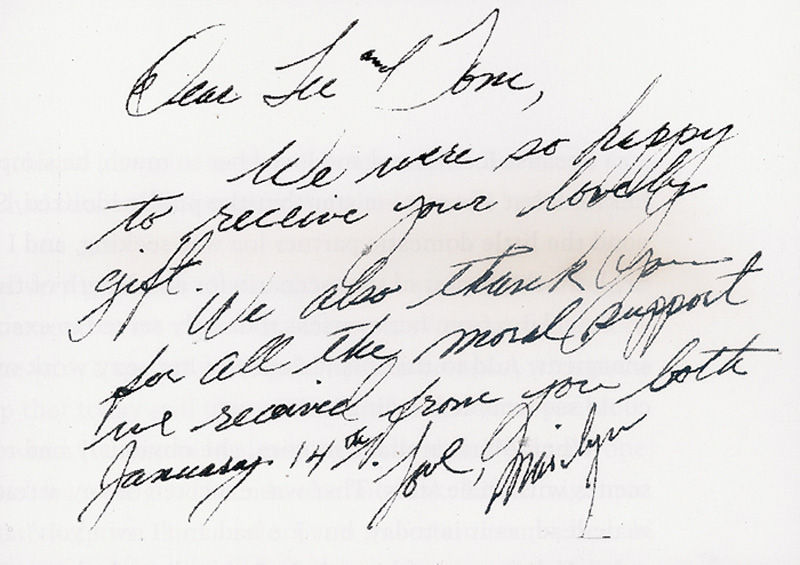 Dear Lee and Tom,
We were so happy
to receive your lovely
gift We also thank you
for all the moral support
we received from you both
January 14th. Love, Marilyn